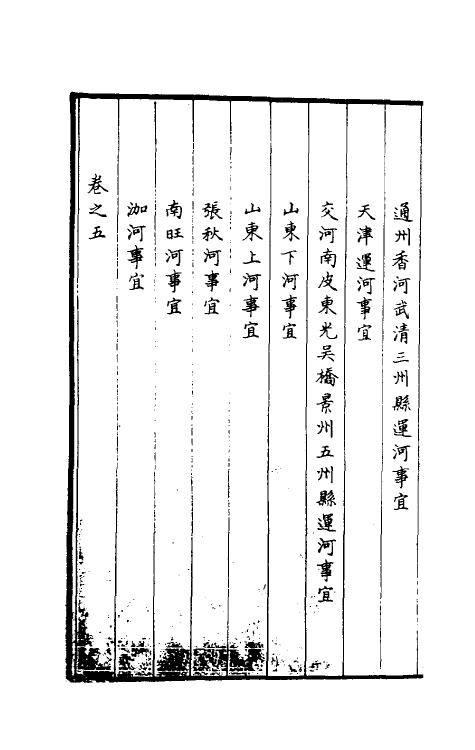 通州香河武清三州縣運河事宜
天津運河事宜
交河南皮東光吳橋景州五州縣運河事宜
山東下河事宜
山東上河事宜
張秋河事宜
南旺河事宜
泇河事宜
卷之五